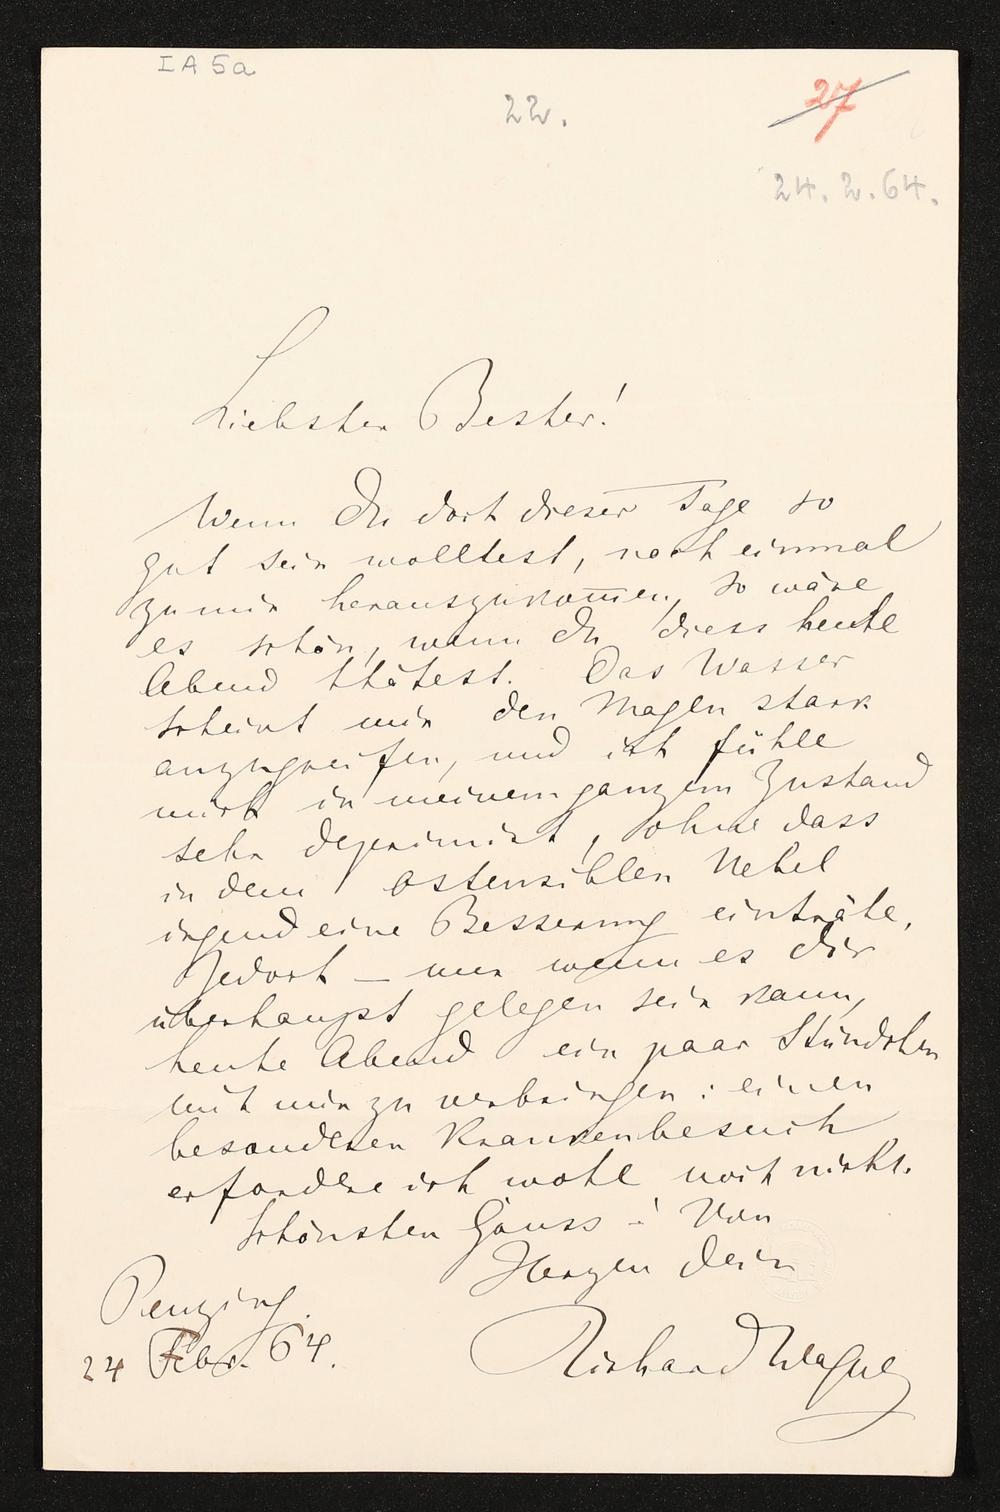 I A 5a
22.
27
24. 2. 64.
Liebster Bester!
Wenn Du doch dieser Tage so
gut sein wolltest, noch einmal
zu mir herauszukom̅en, so wäre
es schön, wenn Du diess heute
Abend thätest. Das Wasser
scheint mir den Magen stark
anzugreifen, und ich fühle
mich in meinem ganzen Zustand
sehr deprimirt, ohne dass
in dem ostensiblen Uebel
irgend eine Besserung einträte.
Jedoch — nur wenn es dir
überhaupt gelegen sein kann,
heute Abend ein paar Stündchen
mit mir zu verbringen: einen
besonderen Krankenbesuch
erfordere ich wohl noch nicht.
Schönsten Gruss! Von
Herzen Dein
Penzing.
24 Febr. 64.
Richard Wagner